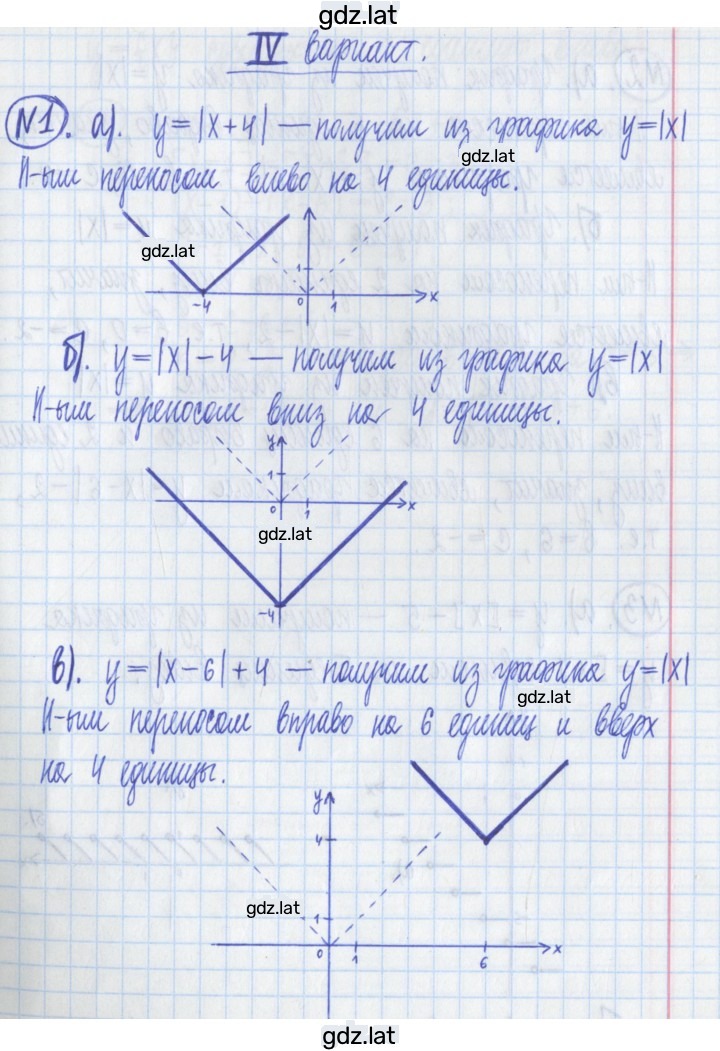 gdz.lat
IV вариант.
№1. а). y=|x+4| — получим из графика y=|x|
gdz.lat
П-ым переносом влево на 4 единицы.
gdz.lat
1
-4 0 1 x
б). y=|x|-4 — получим из графика y=|x|
П-ым переносом вниз на 4 единицы.
y
1
0 1 x
gdz.lat
-4
в). y=|x-6|+4 — получим из графика y=|x|
gdz.lat
П-ым переносом вправо на 6 единиц и вверх
на 4 единицы.
y
4
gdz.lat
1
0 1 6 x
gdz.lat